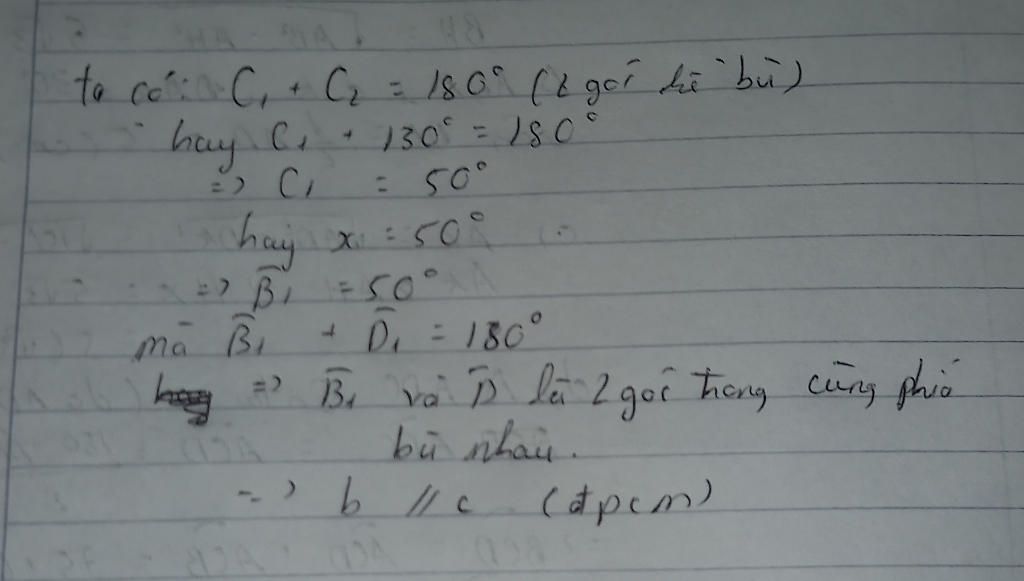 ta có: C₁ + C₂ = 180° (2 góc kề bù)
hay C₁ + 130° = 180°
=> C₁ = 50°
hay x = 50°
=> B̂₁ = 50°
mà B̂₁ + D̂₁ = 180°
=> B̂₁ và D̂ là 2 góc trong cùng phía
bù nhau.
=> b // c (đpcm)